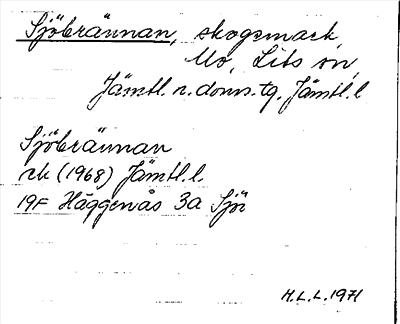 Sjöbrännan, skogsmark,
Mo, Lits sn,
Jämtl. n. doms.tg, Jämtl. l
Sjöbrännan
rk (1968) Jämtl. l.
19F Häggenås 3a Sjöv
H.L.L. 1971